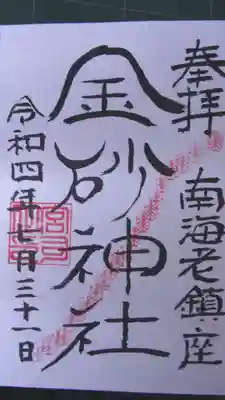 奉拝
南海老鎮座
金砂神社
令和四年七月三十一日